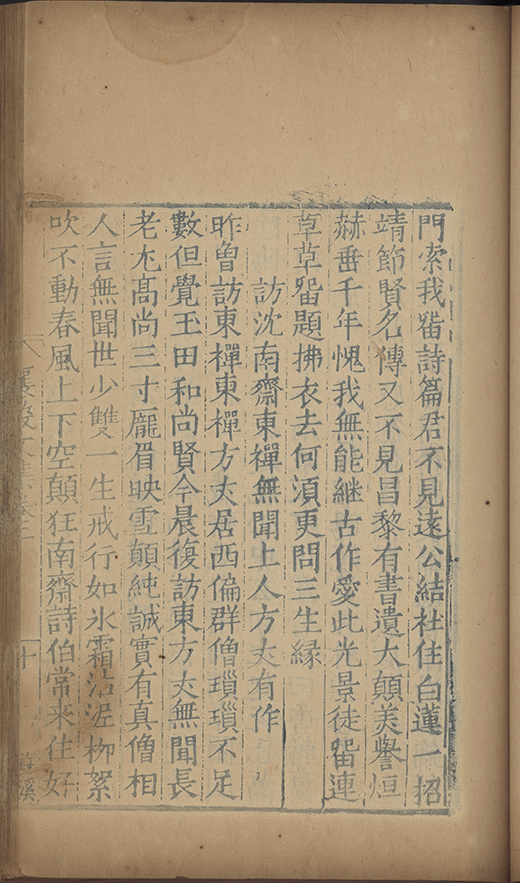 門索我畱詩篇君不見遠公結社住白蓮一招
靖節賢名傳又不見昌黎有書遺大顛美譽烜
赫垂千年愧我無能継古作愛此光景徒畱連
草草畱題拂衣去何須更問三生緣
訪沈南齋東禪無聞上人方丈有作
昨曾訪東禪東禪方丈居西偏群僧瑣瑣不足
數但覺玉田和尚賢今晨復訪東方丈無聞長
老尤髙尚三寸厖眉映雪顛純誠實有真僧相
人言無聞世少雙一生戒行如氷霜沾泥柳絮
吹不動春風上下空顛狂南齋詩伯常來往好
襄毅文集卷三
十